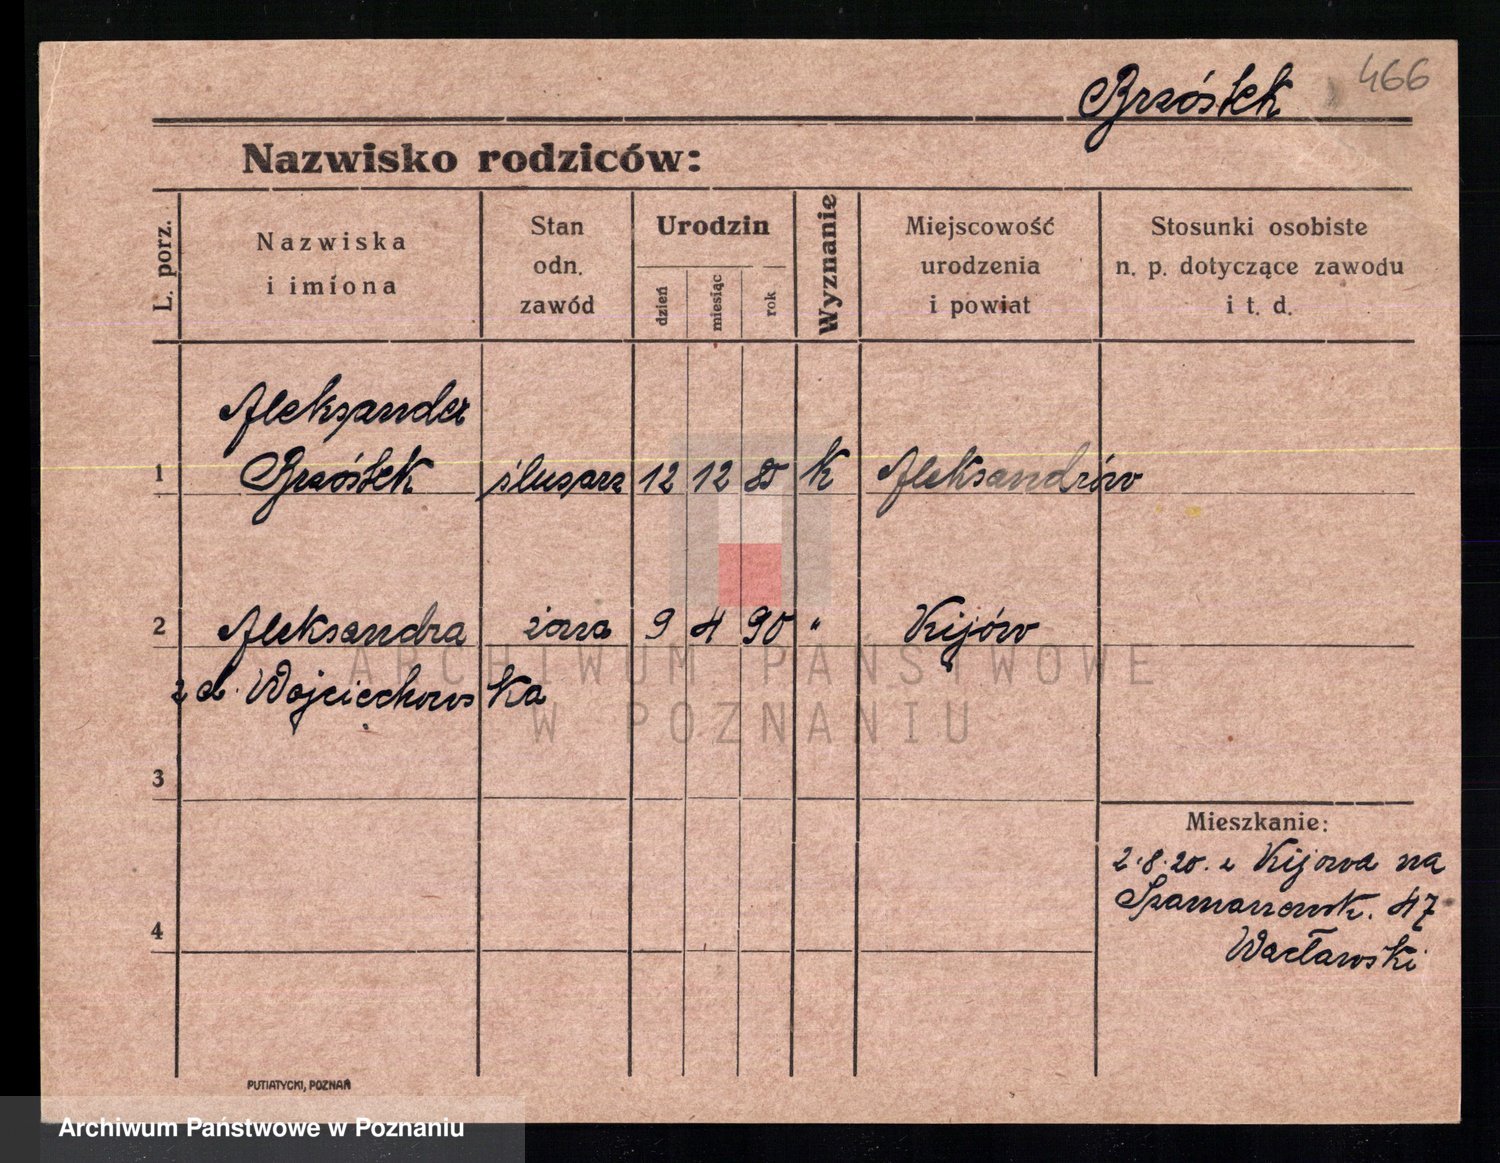 466
Brzóstek
Nazwisko rodziców:
L. porz.
Nazwiska
i imiona
Stan
odn.
zawód
Urodzin
dzień
miesiąc
rok
Wyznanie
Miejscowość
urodzenia
i powiat
Stosunki osobiste
n. p. dotyczące zawodu
i t. d.
Aleksander
1 Brzóstek ślusarz 12 12 85 k Aleksandrów
2 Aleksandra żona 9 4 90 " Kijów
z d. Wojciechowska
3
Mieszkanie:
2.8.20. z Kijowa na
47
4
Wacławski
PUTIATYCKI, POZNAŃ
ARCHIWUM PAŃSTWOWE
W POZNANIU
Archiwum Państwowe w Poznaniu